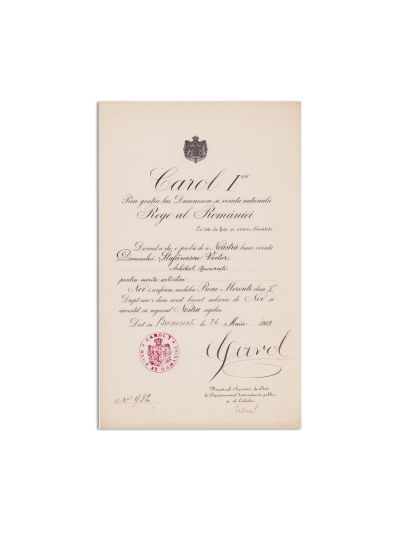 Carol I
Prin grația lui Dumnezeu și voința națională
Rege al României
La toți de față și viitori, Sănătate.
Voind a da o probă de a Noastră bună-voință
Domnului Ștefănescu Victor
Arhitect, București
pentru merite artistice
Noi-i conferim medalia Bene-Merenti clasa I
Drept care-i dăm acest brevet subscris de Noi și
investit cu regescul Nostru sigiliu.
Dat în București la 26 Maiu 1909
CAROL I
REGE AL ROMÂNIEI
Carol
Ministrul Secretar de Stat
la Departamentul Instrucțiunii public
și al Cultelor
No 932